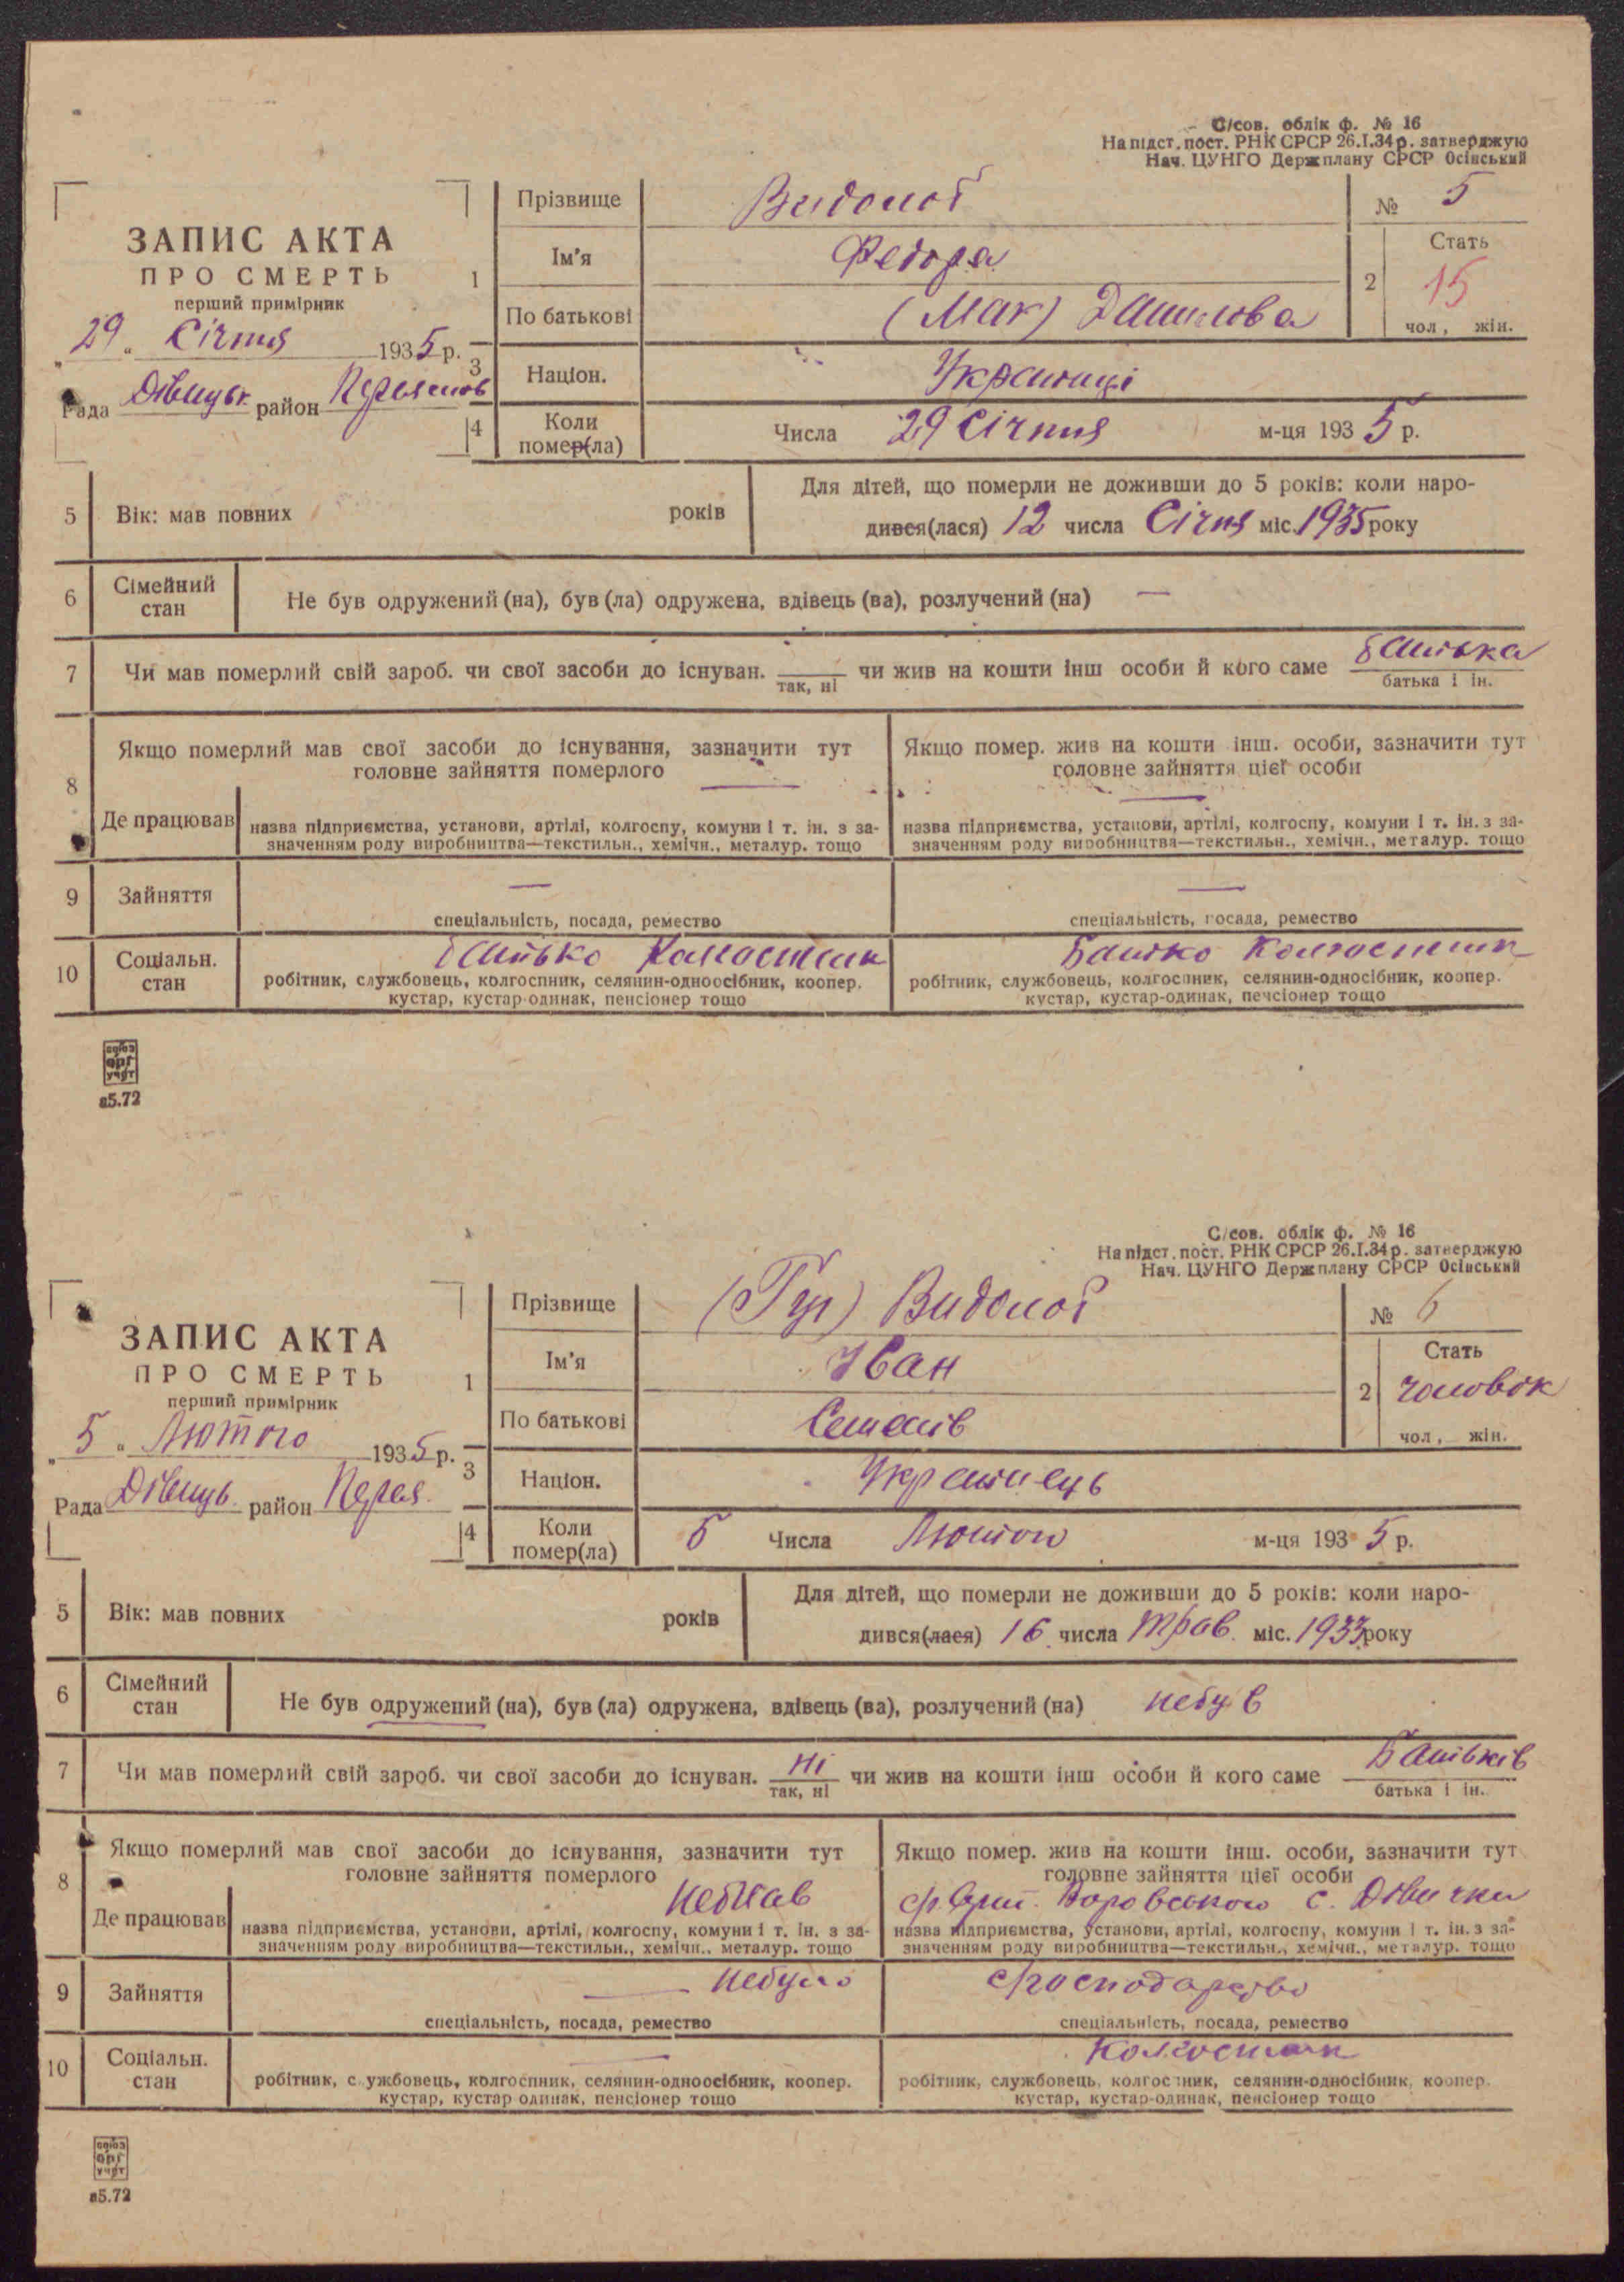 С/сов. облік ф. № 16
На підст. пост. РНК СРСР 26.I.34 р. затверджую
Нач. ЦУНГО Держплану СРСР Осінський
ЗАПИС АКТА
ПРО СМЕРТЬ
перший примірник
„29“ Січня 1935 р.
Рада Дівицьк. район
1
Прізвище Видолоб
Ім'я Федора
По батькові (Мак) Данилова
№ 5
2
Стать
15
чол, жін.
3
Націон.
4
Коли помер(ла)
Числа 29 Січня м-ця 1935 р.
5 Вік: мав повних років
Для дітей, що померли не доживши до 5 років: коли наро-
дився(лася) 12 числа Січня міс. 1935 року
6 Сімейний стан
Не був одружений (на), був (ла) одружена, вдівець (ва), розлучений (на) —
7 Чи мав померлий свій зароб. чи свої засоби до існуван. чи жив на кошти інш особи й кого саме батька
так, ні
батька і ін.
8 Якщо померлий мав свої засоби до існування, зазначити тут
головне зайняття померлого —
Якщо помер. жив на кошти інш. особи, зазначити тут
головне зайняття цієї особи —
Де працював
назва підприємства, установи, артілі, колгоспу, комуни і т. ін. з за-
значенням роду виробництва—текстильн., хемічн., металур. тощо
назва підприємства, установи, артілі, колгоспу, комуни і т. ін. з за-
значенням роду виробництва—текстильн., хемічн., металур. тощо
9 Зайняття — —
спеціальність, посада, ремество
спеціальність, посада, ремество
10 Соціальн. стан
Батько Колгоспник
Батько Колгоспник
робітник, службовець, колгоспник, селянин-одноосібник, коопер.
кустар, кустар-одинак, пенсіонер тощо
робітник, службовець, колгоспник, селянин-односібник, коопер.
кустар, кустар-одинак, пенсіонер тощо
союз
орг
учет
в5.72
С/сов. облік ф. № 16
На підст. пост. РНК СРСР 26.I.34 р. затверджую
Нач. ЦУНГО Держплану СРСР Осінський
ЗАПИС АКТА
ПРО СМЕРТЬ
перший примірник
„5“ Лютого 1935 р.
Рада Дівицьк. район Перея.
1
Прізвище (Гур) Видолоб
Ім'я Іван
По батькові Семенів
№ 6
2
Стать
чоловік
чол, жін.
3
Націон. Українець
4
Коли помер(ла)
5 Числа Лютого м-ця 1935 р.
5 Вік: мав повних років
Для дітей, що померли не доживши до 5 років: коли наро-
дився(лася) 16 числа трав. міс. 1933 року
6 Сімейний стан
Не був одружений (на), був (ла) одружена, вдівець (ва), розлучений (на) небув
7 Чи мав померлий свій зароб. чи свої засоби до існуван. ні чи жив на кошти інш особи й кого саме Батьків
так, ні
батька і ін.
8 Якщо померлий мав свої засоби до існування, зазначити тут
головне зайняття померлого
Якщо помер. жив на кошти інш. особи, зазначити тут
головне зайняття цієї особи
Де працював
с. Дівички
назва підприємства, установи, артілі, колгоспу, комуни і т. ін. з за-
значенням роду виробництва—текстильн., хемічн., металур. тощо
назва підприємства, установи, артілі, колгоспу, комуни і т. ін. з за-
значенням роду виробництва—текстильн., хемічн., металур. тощо
9 Зайняття — небуло
спеціальність, посада, ремество
спеціальність, посада, ремество
10 Соціальн. стан — Колгоспник
робітник, службовець, колгоспник, селянин-одноосібник, коопер.
кустар, кустар одинак, пенсіонер тощо
робітник, службовець, колгоспник, селянин-односібник, коопер.
кустар, кустар-одинак, пенсіонер тощо
союз
орг
учет
в5.72